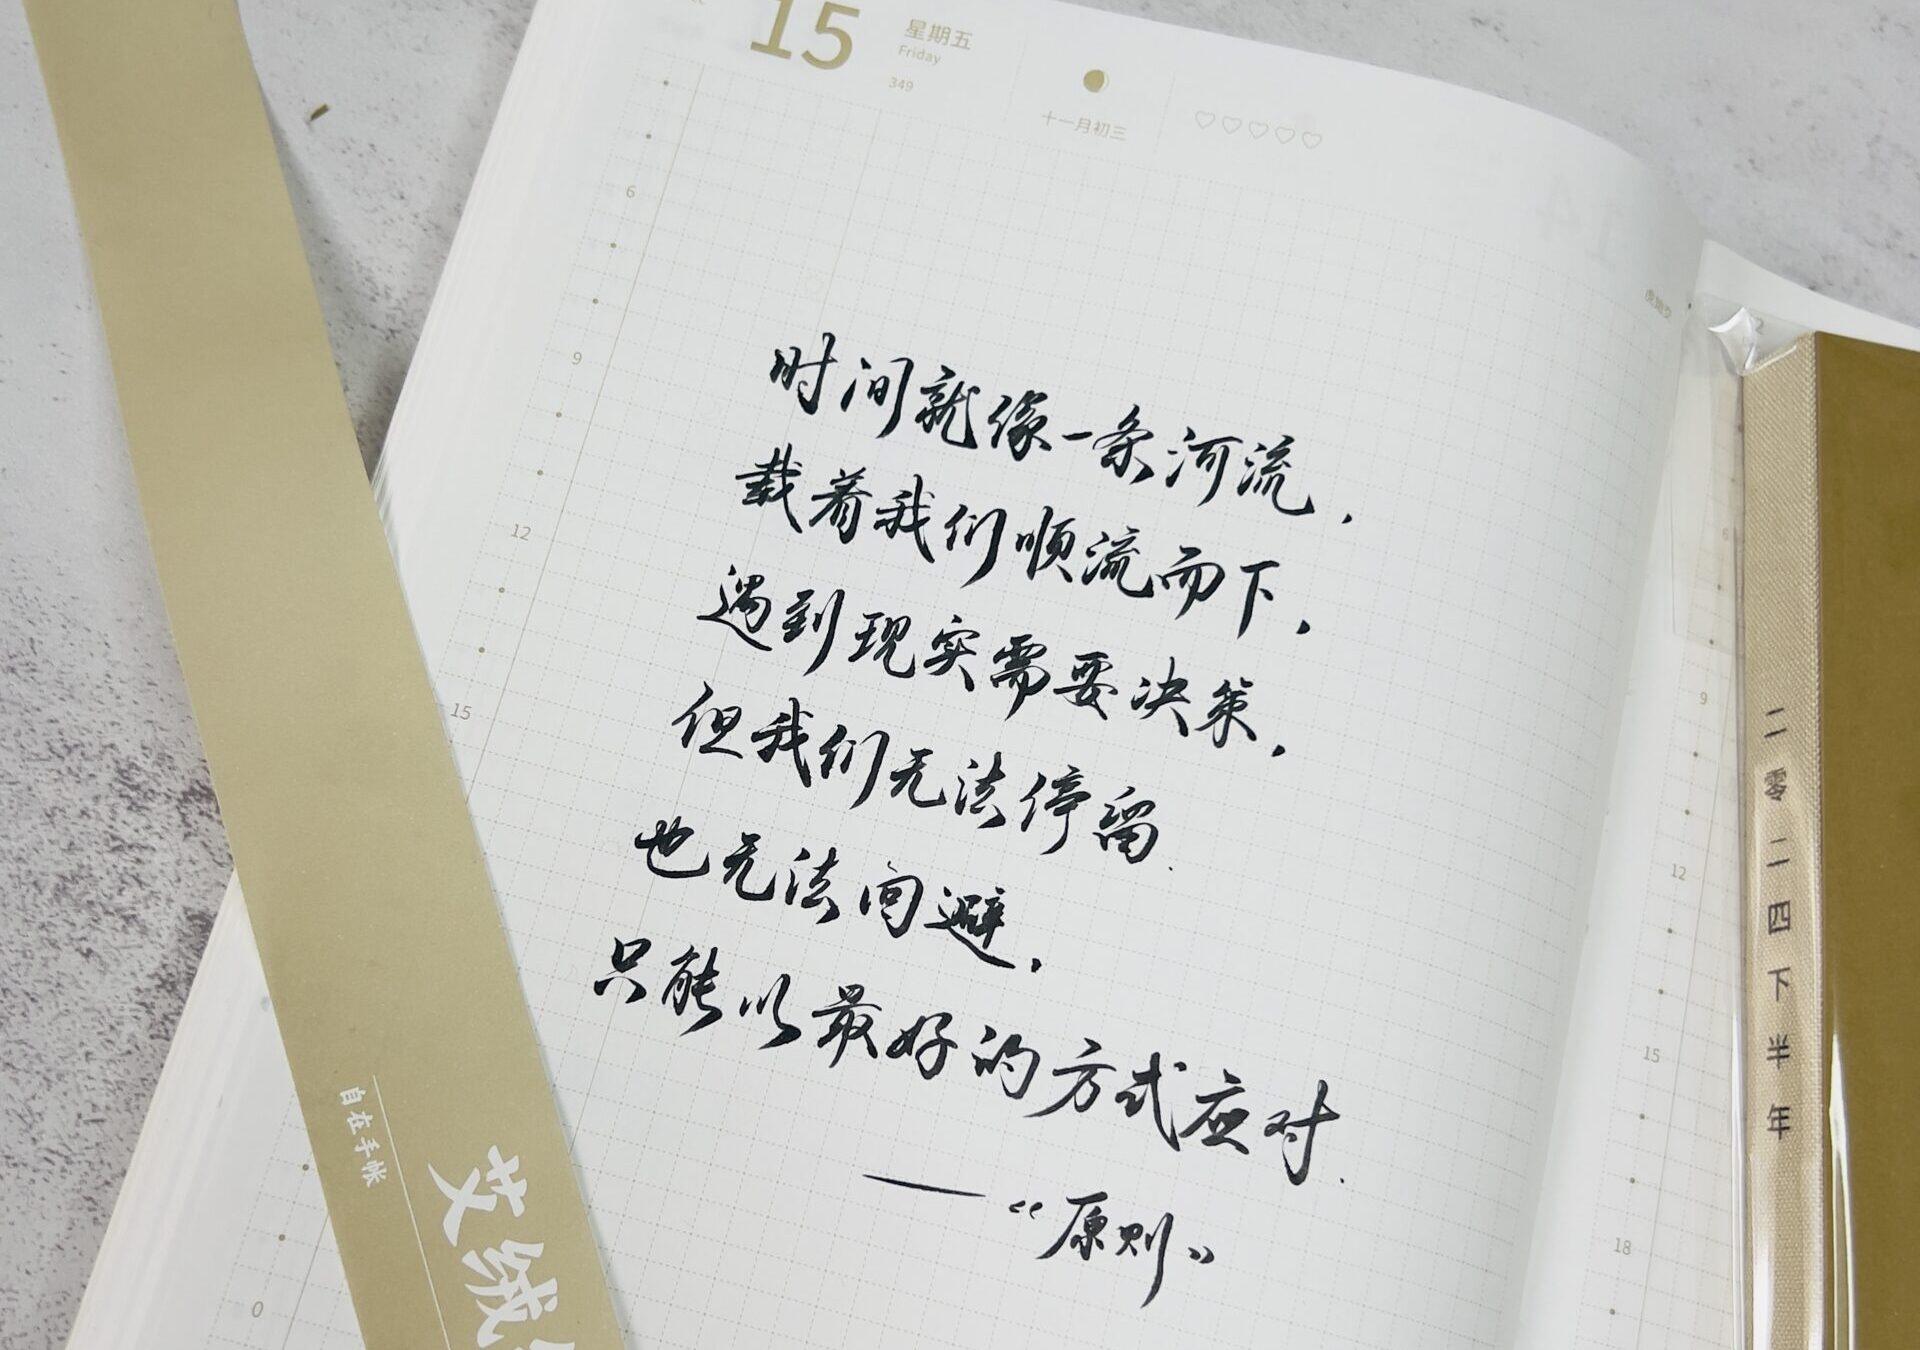 15
星期五
Friday
349
十一月初三
6
9
12
15
0
时间就像一条河流,
载着我们顺流而下,
遇到现实需要决策,
但我们无法停留.
也无法回避,
只能以最好的方式应对.
——《原则》
自在手帐
艾绒
6
9
12
15
18
二零二四下半年